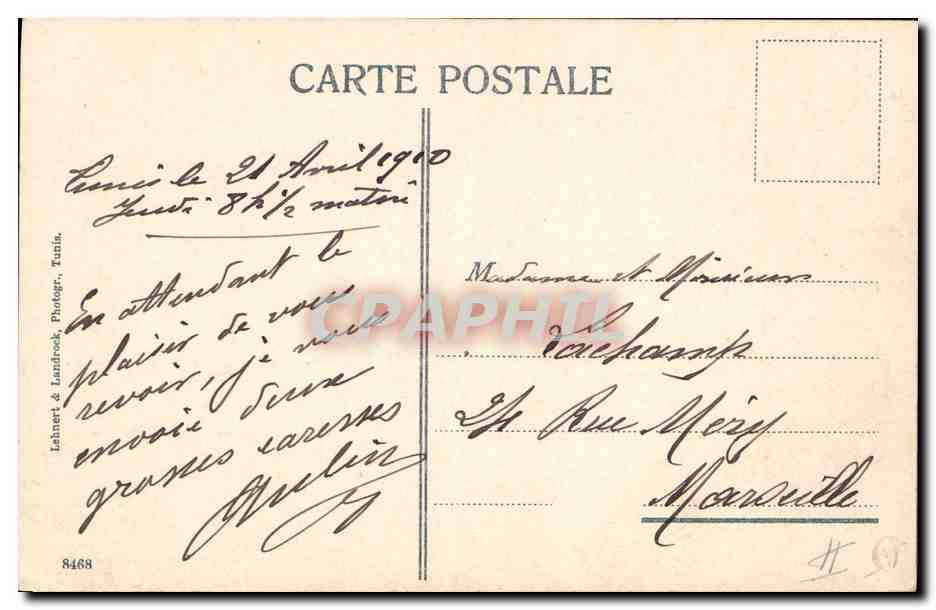 CARTE POSTALE
Tunis le 21 Avril 1910
Jeudi 8h 1/2 matin
En attendant le
plaisir de vous
revoir, je vous
envoie deux
grosses caresses
Madame et Monsieur
Lachamp
24 Rue Méry
Marseille
Lehnert & Landrock, Photogr., Tunis.
8468
CPAPHIL